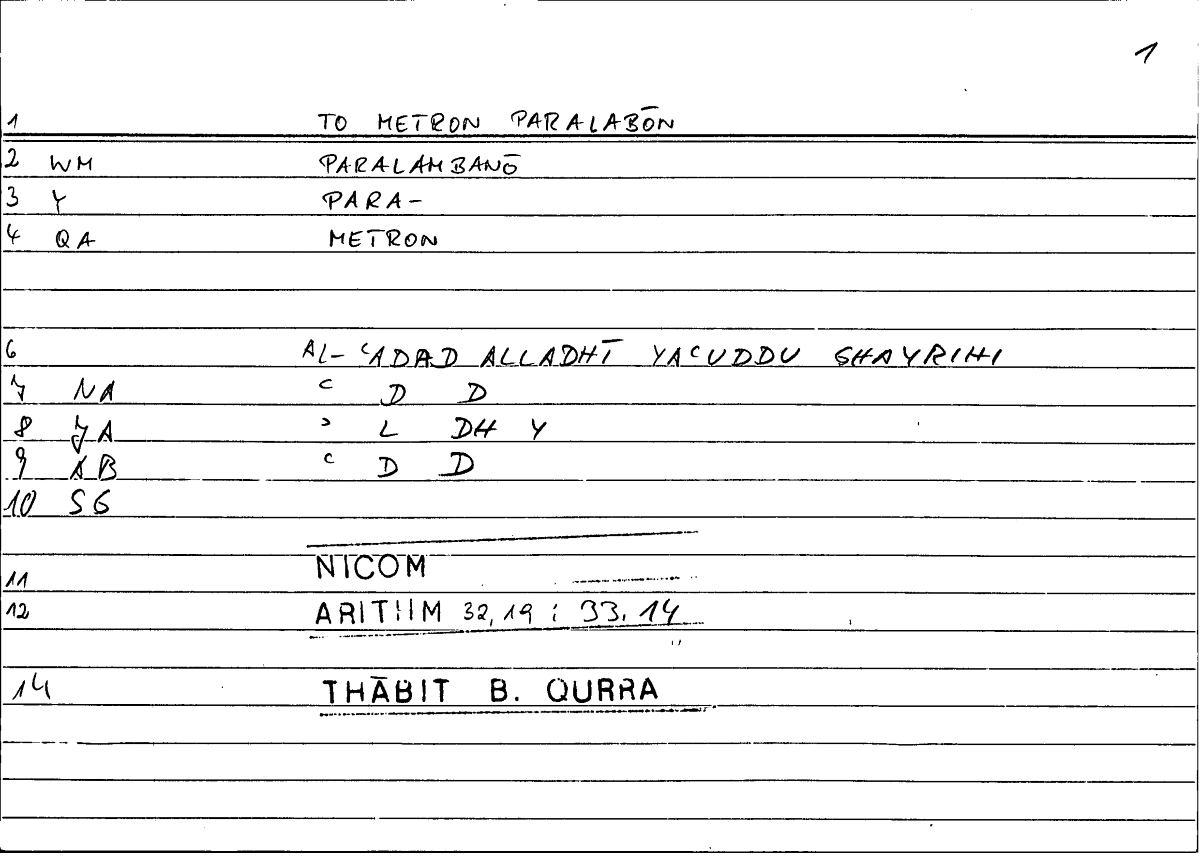 1
1 TO METRON PARALABŌN
2 WM PARALAMBANŌ
3 Y PARA-
4 QA METRON
6 AL-ʿADAD ALLADHĪ YAʿUDDU GHAYRIHI
7 NA ʿ D D
8 JA ʾ L DH Y
9 AB ʿ D D
10 SG
11 NICOM
12 ARITHM 32,19 ; 33,14
14 THĀBIT B. QURRA